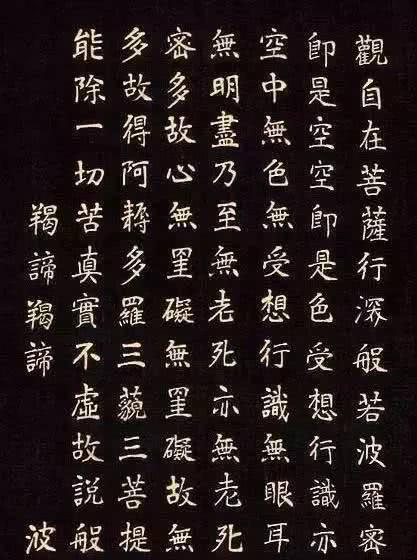 觀自在菩薩行深般若波羅密
即是空空即是色受想行識亦
空中無色無受想行識無眼耳
無明盡乃至無老死亦無老死
密多故心無罣礙無罣礙故無
多故得阿耨多羅三藐三菩提
能除一切苦真實不虛故說般
羯諦羯諦 波